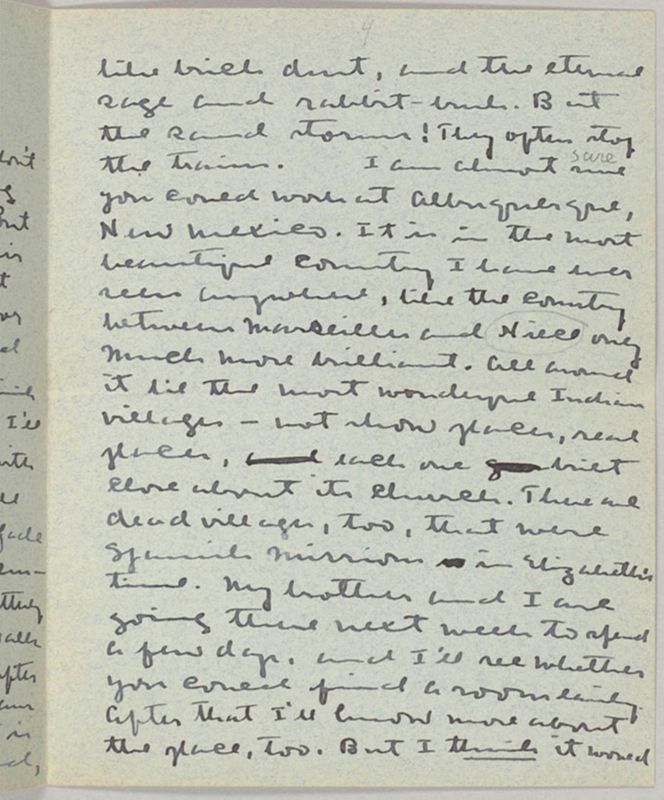 4
like brick dust, and the eternal
sage and rabbit-brush. But
the sand storms! They often stop
the trains. I am almost sure
sure
you could work at Albuquerque,
New Mexico. It is in the most
beautiful country I have ever
seen anywhere, like the country
between Marseilles and Nice only
much more brilliant. All around
it lie the most wonderful Indian
villages - not show places, real
places, each one built
close about its church. There are
dead villages, too, that were
Spanish missions in Elizabeth's
time. My brother and I are
going there next week to spend
a few days, and I'll see whether
you could find a room easily
After that I'll know more about
the place, too. But I think it would